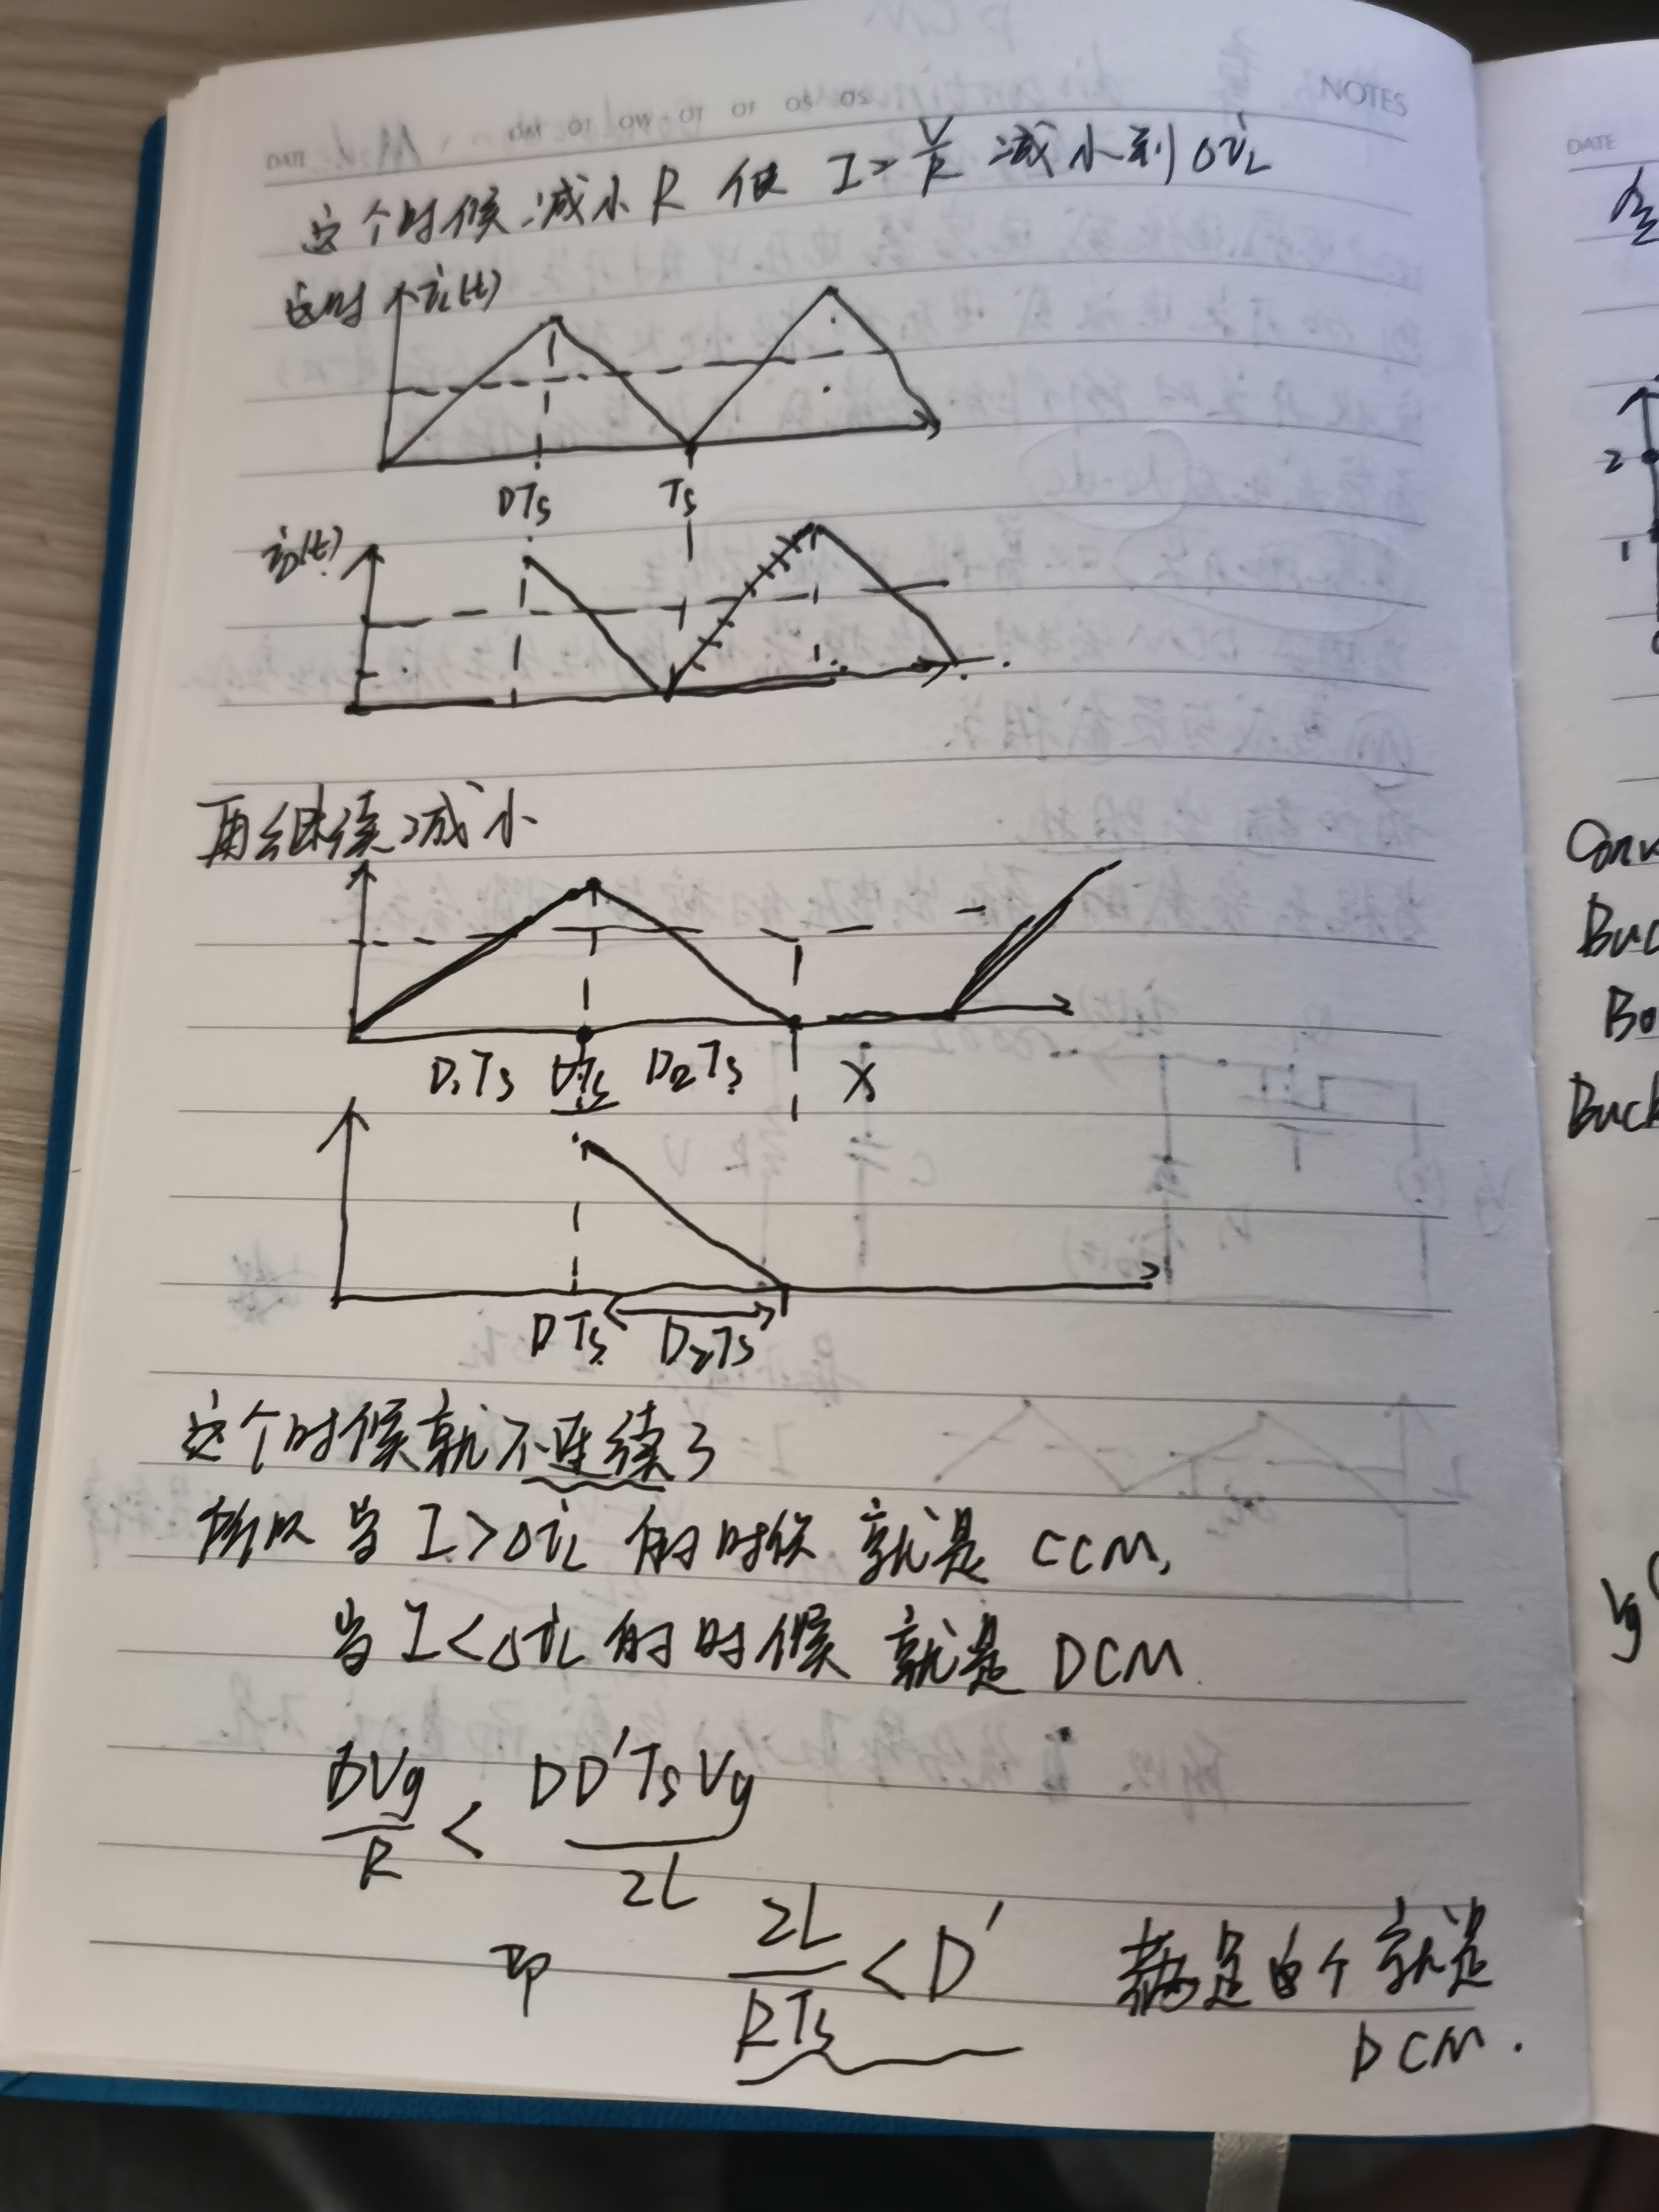 NOTES
DATE
这个时候减小R 使 I=V/R 减小到 Δi_L
这时 i_L(t)
DTs Ts
i_D(t)
再继续减小
D₁Ts DTs D₂Ts X
DTs D₂Ts
这个时候就不连续了
所以 当 I>Δi_L 的时候 就是 CCM,
当 I<Δi_L 的时候 就是 DCM.
DVg/R < DD'TsVg/2L
即 2L/RTs < D' 满足这个就是
DCM.
DATE
2
1
Conv
Buc
Bo
Buck
Vg